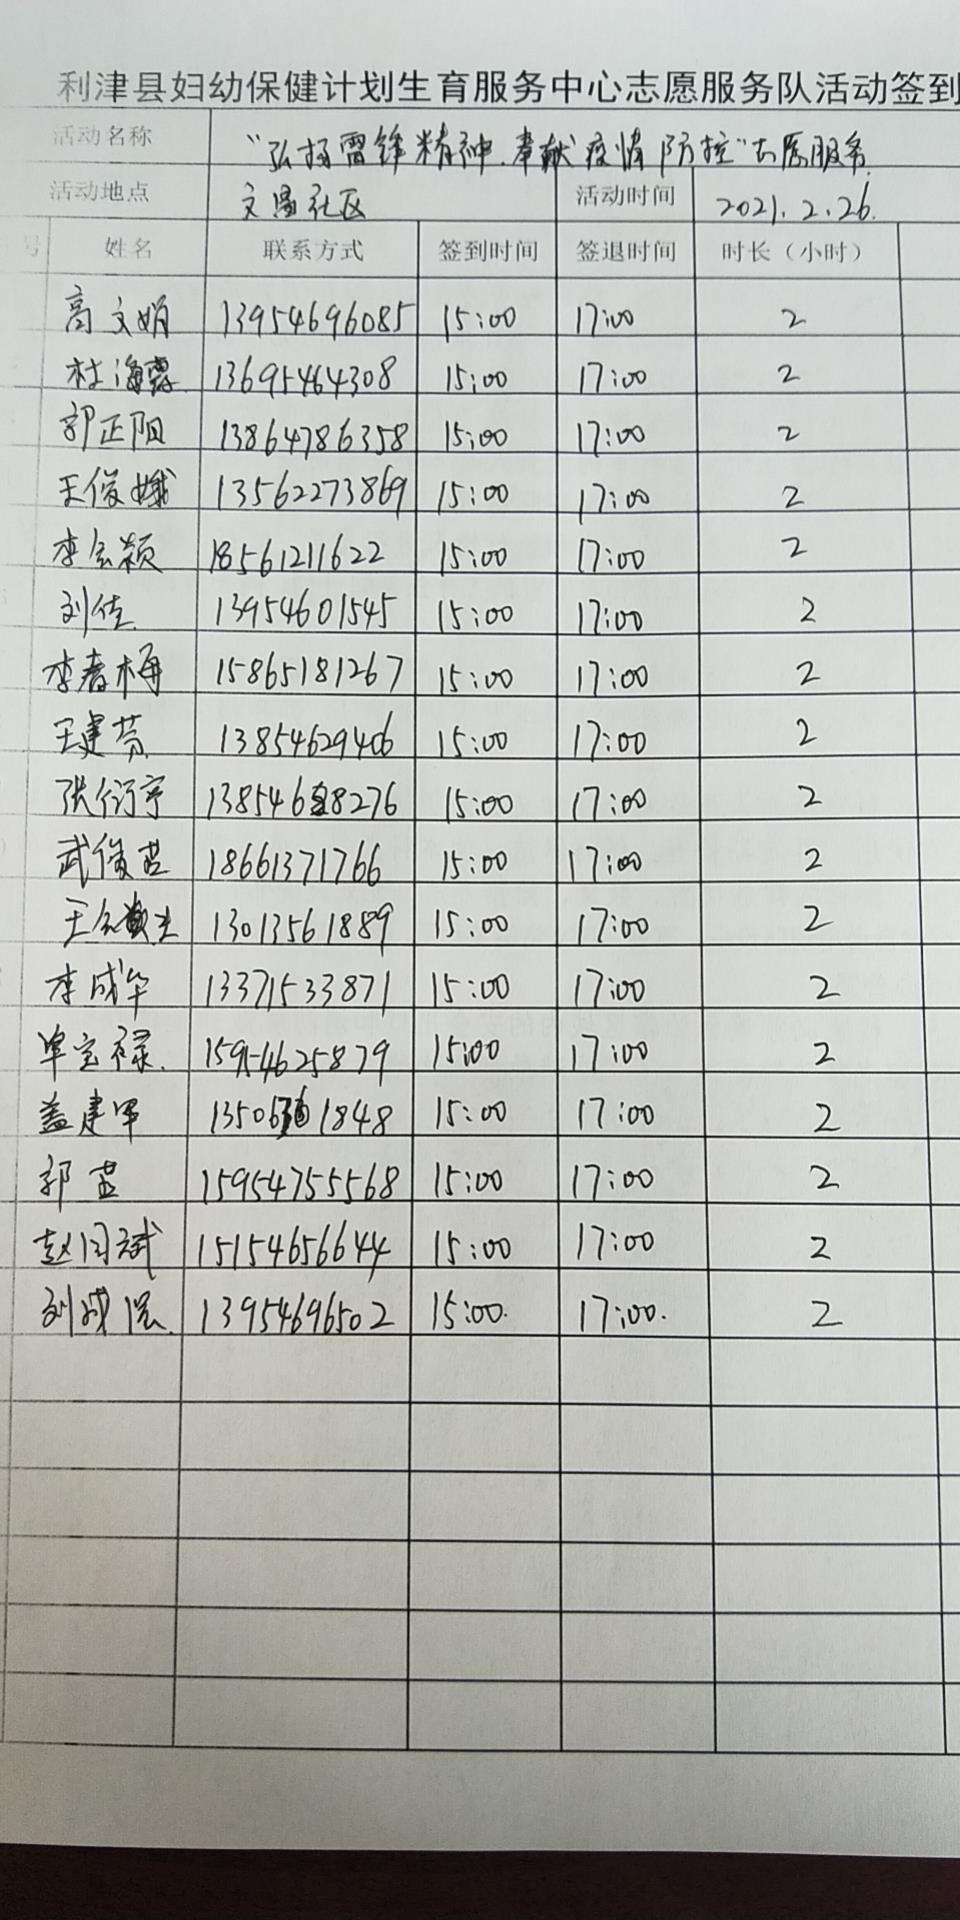 利津县妇幼保健计划生育服务中心志愿服务队活动签到
活动名称 “弘扬雷锋精神.奉献疫情防控”志愿服务
活动地点 文昌社区 活动时间 2021.2.26.
号 姓名 联系方式 签到时间 签退时间 时长（小时）
高文娟 13954696085 15:00 17:00 2
杜海霞 13695464308 15:00 17:00 2
郭正阳 13864786358 15:00 17:00 2
王俊娥 13562273869 15:00 17:00 2
李会颖 18561211622 15:00 17:00 2
刘佳 13954601545 15:00 17:00 2
李春梅 15865181267 15:00 17:00 2
王建芬 13854629406 15:00 17:00 2
张衍亭 15:00 17:00 2
武俊芸 18661371766 15:00 17:00 2
王 13013561889 15:00 17:00 2
李成华 13371533871 15:00 17:00 2
单宝禄. 15954625879 15:00 17:00 2
盖建军 15:00 17:00 2
郭芸 15954755568 15:00 17:00 2
赵国斌 15154656644 15:00 17:00 2
刘成 13954696502 15:00. 17:00. 2